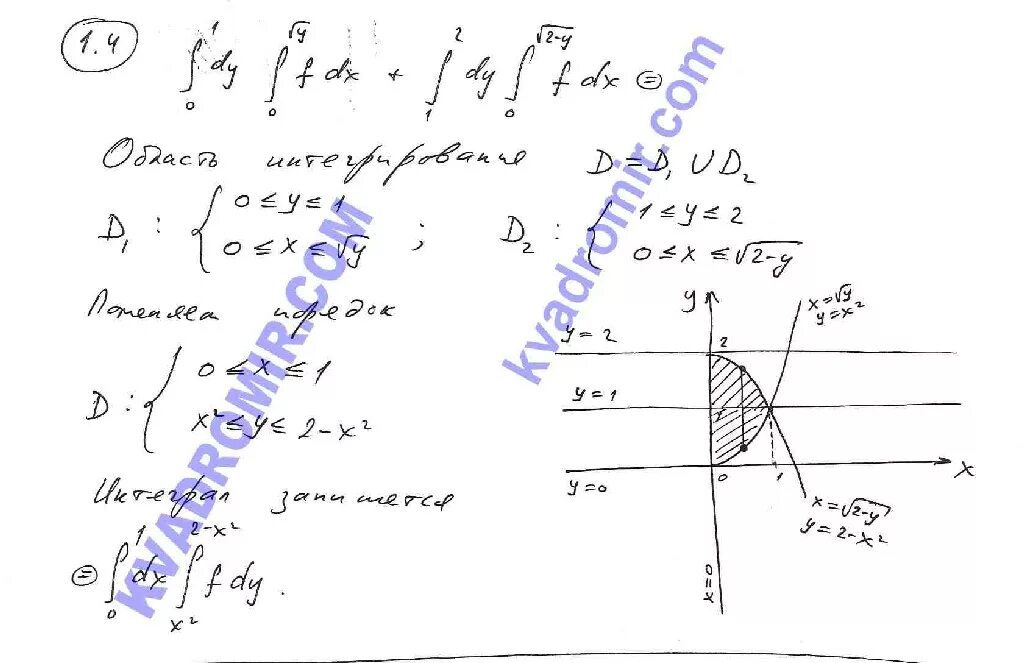 1.4 ∫₀¹ dy ∫₀^√y f dx + ∫₁² dy ∫₀^√(2-y) f dx ⊜
Область интегрирования D = D₁ ∪ D₂
D₁ : { 0 ≤ y ≤ 1 ; 0 ≤ x ≤ √y ; D₂ : { 1 ≤ y ≤ 2 ; 0 ≤ x ≤ √(2-y)
Поменяем порядок
D : { 0 ≤ x ≤ 1 ; x² ≤ y ≤ 2-x²
Интеграл запишется
⊜ ∫₀¹ dx ∫_{x²}^{2-x²} f dy .
y
x=√y
y=x²
y=2
2
y=1
y=0
0
1
x
x=√(2-y)
y=2-x²
x=0
KVADROMIR.COM
kvadromir.com